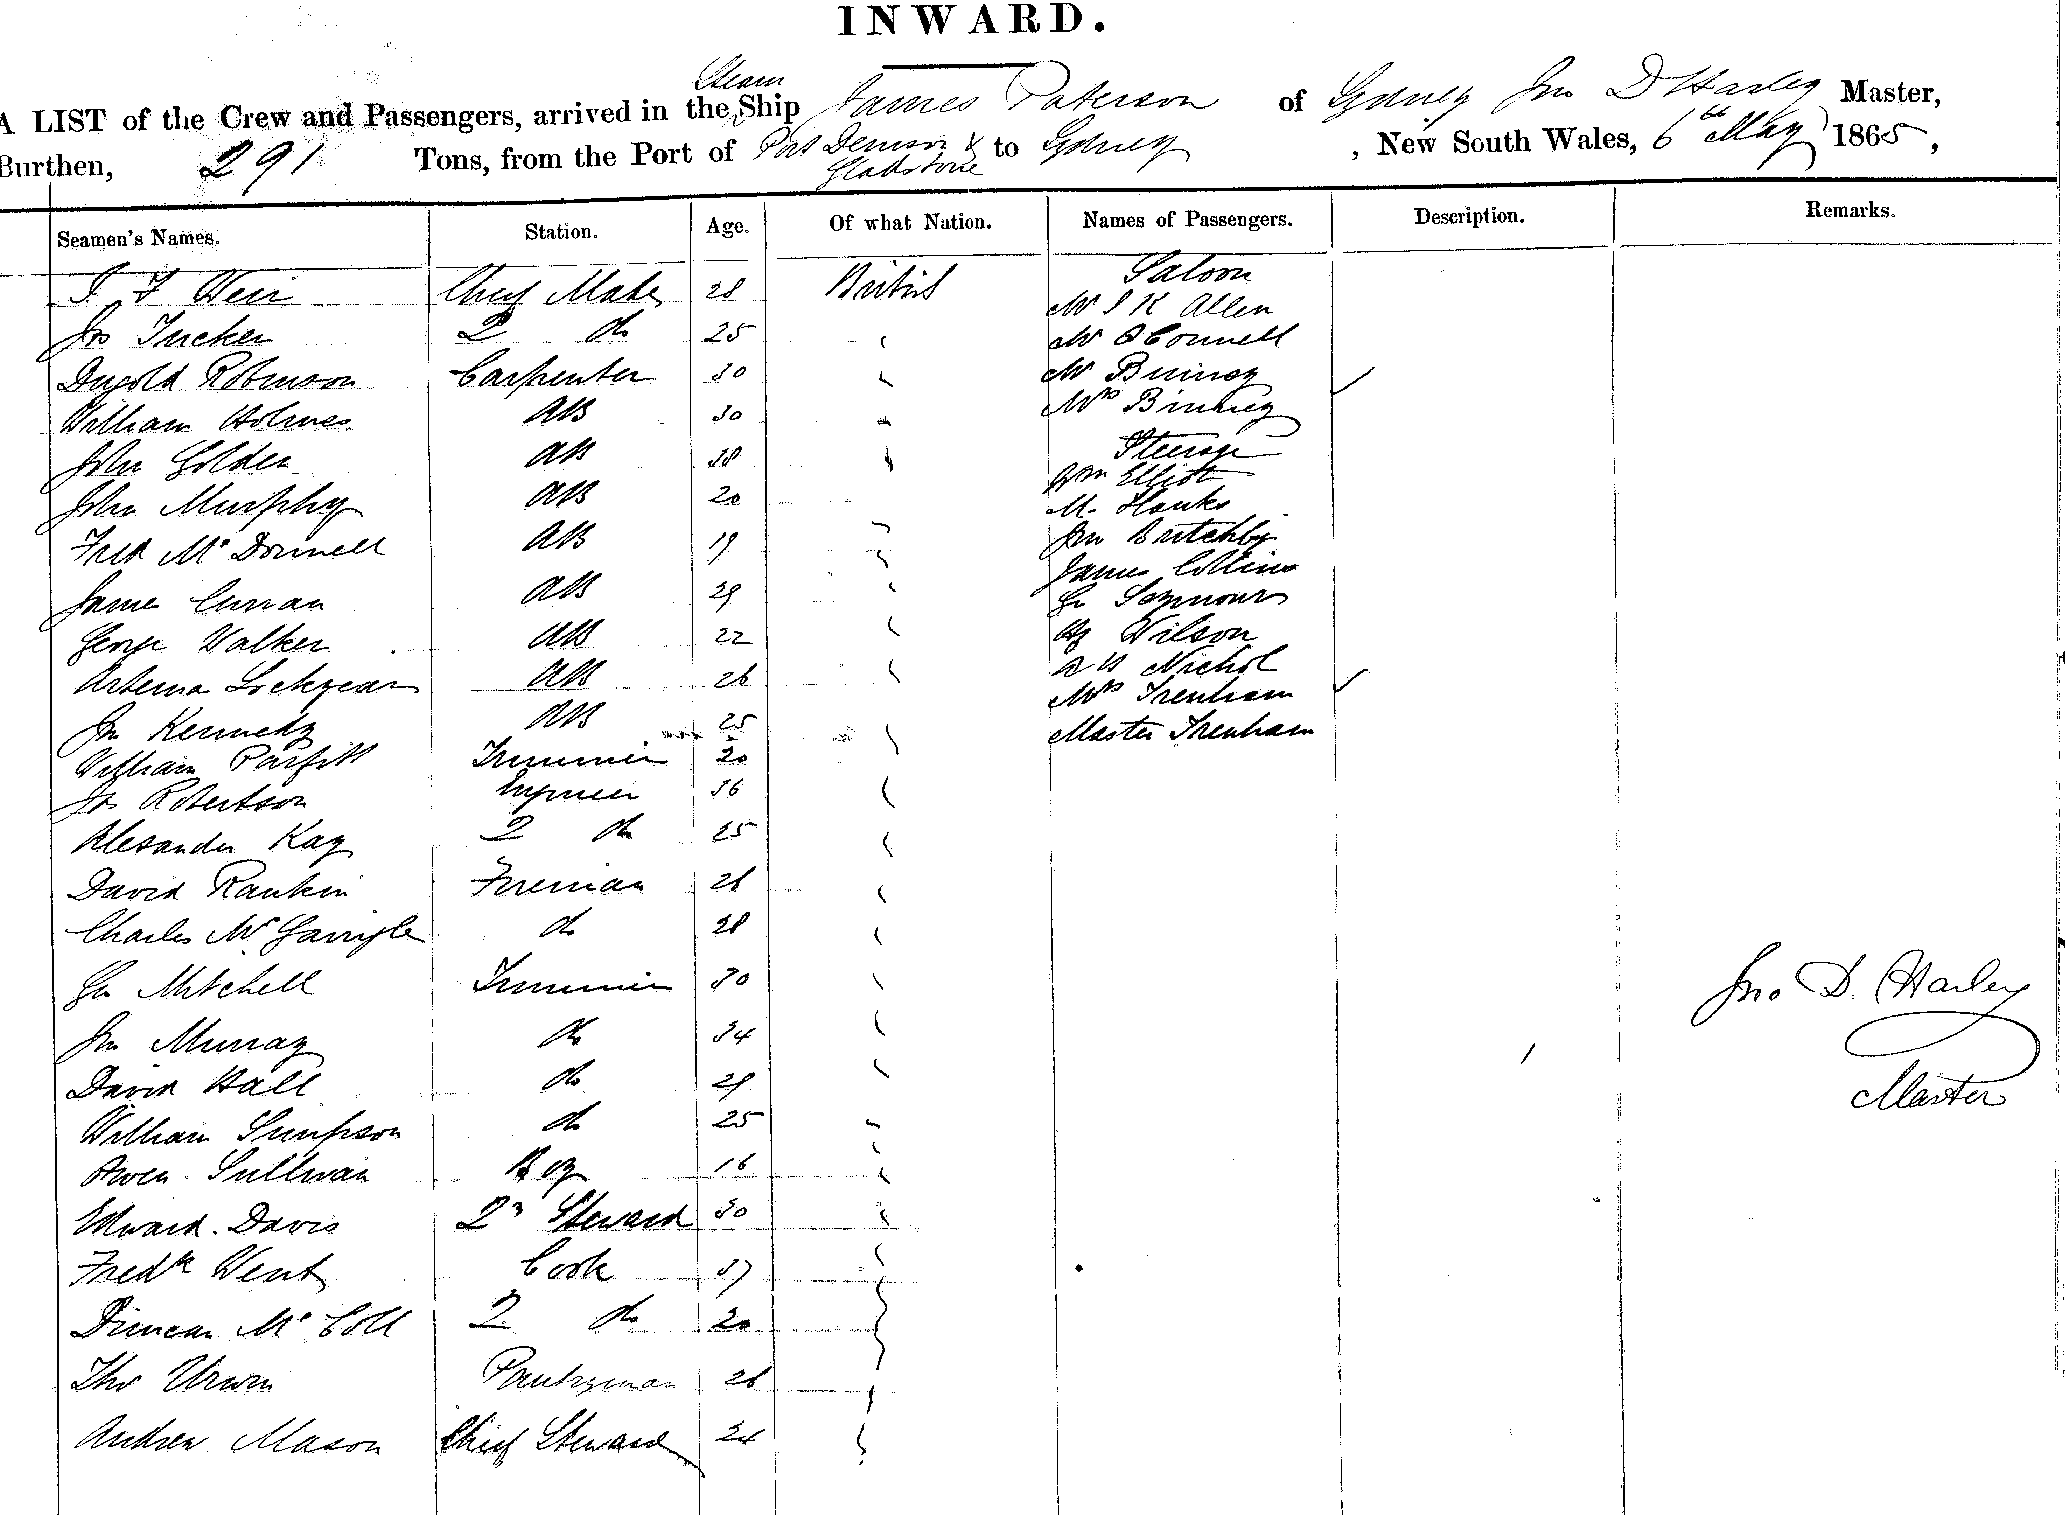 INWARD.
A LIST of the Crew and Passengers, arrived in the Steam Ship James Paterson of Sydney Jno D Harley Master,
Burthen, 291 Tons, from the Port of Port Denison & Gladstone to Sydney, New South Wales, 6th May 1865,
Seamen's Names. Station. Age. Of what Nation. Names of Passengers. Description. Remarks.
Weir Chief Mate 28 British Saloon
Mr J K Allen
Jas Tucker 2 do 25 Mr O'Connell
Dugold Robinson Carpenter 30 Mr Binney
William Holmes AB 30 Mrs Binney
John Golder AB 38 Steerage
Wm Elliot
John Murphy AB 20 M. Hanks
Fred McDonnell AB 19 Jno Britchby
James Collins
James Curran AB 29 Geo Seymour
George Walker AB 22 Hy Wilson
Nichol
Artema Lockyear AB 26 Mrs Trenham
Jno Kennedy AB 25 Master Trenham
William Parfitt Trimmer 20
Jas Robertson Engineer 36
Alexander Kay 2 do 25
David Rankin Fireman 26
Charles McGarrigle do 28
Geo Mitchell Trimmer 30
Jno D. Harley
Jno Murray do 34
David Hall do 29
Master
William Simpson do 25
Owen Sullivan Boy 16
Edward Davis 2nd Steward 30
Fredk Went Cook 37
Duncan McColl 2 do 20
Thos Urwin Pantryman 26
Andrew Mason Chief Steward 34